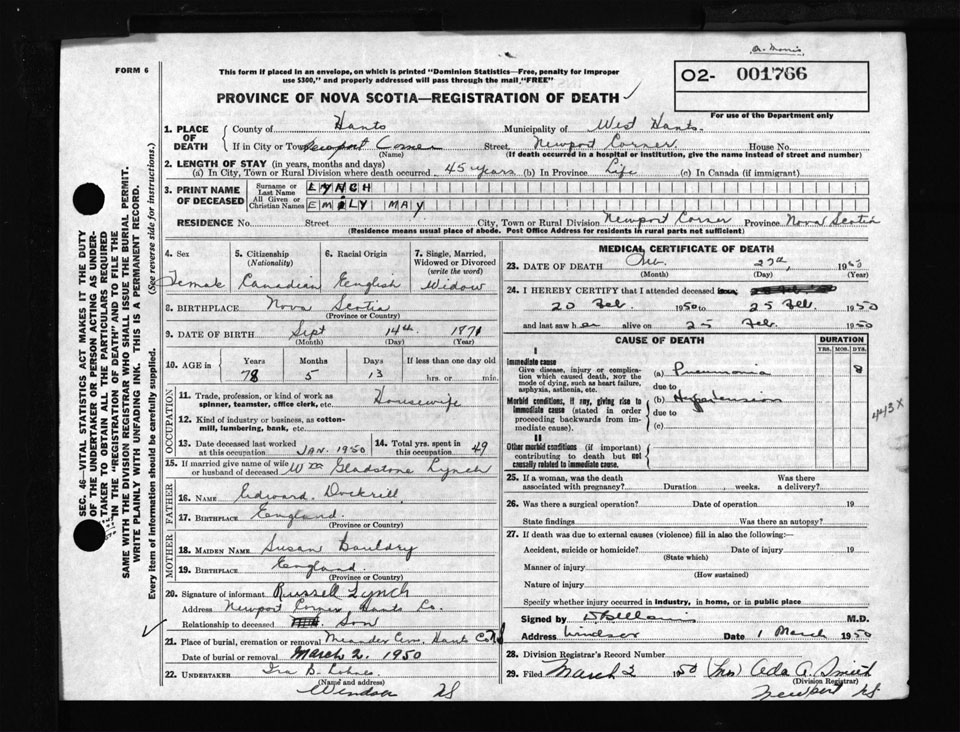 A. Morris
FORM 6
This form if placed in an envelope, on which is printed "Dominion Statistics—Free, penalty for improper
use $300," and properly addressed will pass through the mail "FREE"
02- 001766
For use of the Department only
PROVINCE OF NOVA SCOTIA—REGISTRATION OF DEATH ✓
SEC. 46—VITAL STATISTICS ACT MAKES IT THE DUTY
OF THE UNDERTAKER OR PERSON ACTING AS UNDER-
TAKER TO OBTAIN ALL THE PARTICULARS REQUIRED
IN THE "REGISTRATION OF DEATH" AND TO FILE THE
SAME WITH THE DIVISION REGISTRAR WHO SHALL ISSUE THE BURIAL PERMIT.
WRITE PLAINLY WITH UNFADING INK. THIS IS A PERMANENT RECORD.
Every item of information should be carefully supplied. (See reverse side for instructions.)
1. PLACE OF DEATH
County of Hants Municipality of West Hants.
If in City or Town Newport Corner Street, Newport Corner House No.
(Name) (If death occurred in a hospital or institution, give the name instead of street and number)
2. LENGTH OF STAY (in years, months and days)
(a) In City, Town or Rural Division where death occurred 45 years (b) In Province Life (c) In Canada (if immigrant)
3. PRINT NAME OF DECEASED
Surname or Last Name LYNCH
All Given or Christian Names EMILY MAY
RESIDENCE No. Street City, Town or Rural Division Newport Corner Province Nova Scotia
(Residence means usual place of abode. Post Office Address for residents in rural parts not sufficient)
4. Sex 5. Citizenship (Nationality) 6. Racial Origin 7. Single, Married, Widowed or Divorced (write the word)
Female Canadian English Widow
8. BIRTHPLACE Nova Scotia
(Province or Country)
9. DATE OF BIRTH Sept 14th 1871
(Month) (Day) (Year)
10. AGE in Years Months Days If less than one day old
78 5 13 hrs. or min.
OCCUPATION
11. Trade, profession, or kind of work as spinner, teamster, office clerk, etc. Housewife
12. Kind of industry or business, as cotton-mill, lumbering, bank, etc.
13. Date deceased last worked at this occupation JAN. 1950 14. Total yrs. spent in this occupation 49
15. If married give name of wife or husband of deceased Wm Gladstone Lynch
FATHER
16. NAME Edward Dockrill
17. BIRTHPLACE England.
(Province or Country)
MOTHER
18. MAIDEN NAME Susan Bouldry
19. BIRTHPLACE England.
(Province or Country)
20. Signature of informant Russell Lynch
Address Newport Corner, Hants Co.
Relationship to deceased Son
✓
21. Place of burial, cremation or removal Meander Cem. Hants Co
Date of burial or removal March 2, 1950
22. UNDERTAKER Ira B.
(Name and address)
Windsor NS
MEDICAL CERTIFICATE OF DEATH
23. DATE OF DEATH 27th, 19
(Month) (Day) (Year)
24. I HEREBY CERTIFY that I attended deceased
20 Feb. 1950 to 25 Feb 1950
and last saw her alive on 25 Feb. 1950
CAUSE OF DEATH DURATION
YRS. MOS. DYS.
I
Immediate cause
Give disease, injury or complication which caused death, nor the mode of dying, such as heart failure, asphyxia, asthenia, etc.
(a) Pneumonia 8
due to
Morbid conditions, if any, giving rise to immediate cause (stated in order proceeding backwards from immediate cause).
(b) Hypertension
due to
(c)
443X
II
Other morbid conditions (if important) contributing to death but not causally related to immediate cause.
25. If a woman, was the death associated with pregnancy? Duration weeks. Was there a delivery?
26. Was there a surgical operation? Date of operation 19
State findings Was there an autopsy?
27. If death was due to external causes (violence) fill in also the following:
Accident, suicide or homicide? Date of injury 19
(State which)
Manner of injury
(How sustained)
Nature of injury
Specify whether injury occurred in industry, in home, or in public place
Signed by M.D.
Address Windsor Date 1 March 1950
28. Division Registrar's Record Number
29. Filed March 2 1950 (Mrs) Ada A. Smith
(Division Registrar)
Newport NS